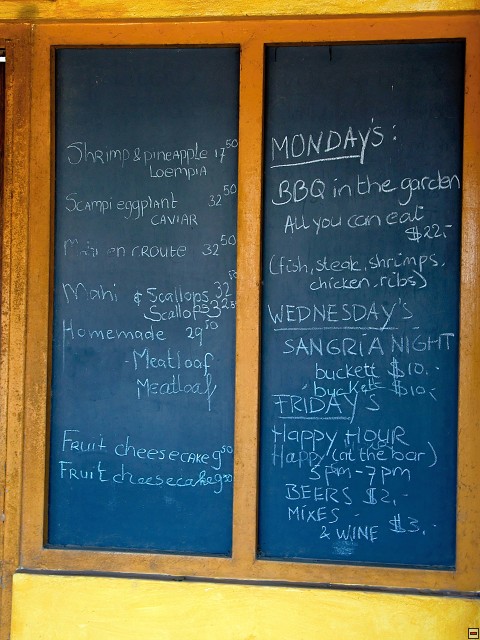 Shrimp & pineapple 17 50
Loempia
Scampi eggplant 32 50
CAVIAR
en CROUTE 32 50
Mahi & Scallops 32 50
Scallops 32 50
Homemade 29 50
Meatloaf
Meatloaf
FRUIT cheesecake 9 50
FRUIT cheesecake 9 50
MONDAY's:
BBQ in the garden
All you can eat
$22,-
(fish, steak, shrimps,
chicken, ribs)
WEDNESDAY's
SANGRIA NIGHT
buckett $10,-
buckett $10,-
FRIDAY's
Happy HOUR
Happy (at the bar)
5pm-7pm
BEERS $2,-
MIXES
& WINE $3,-